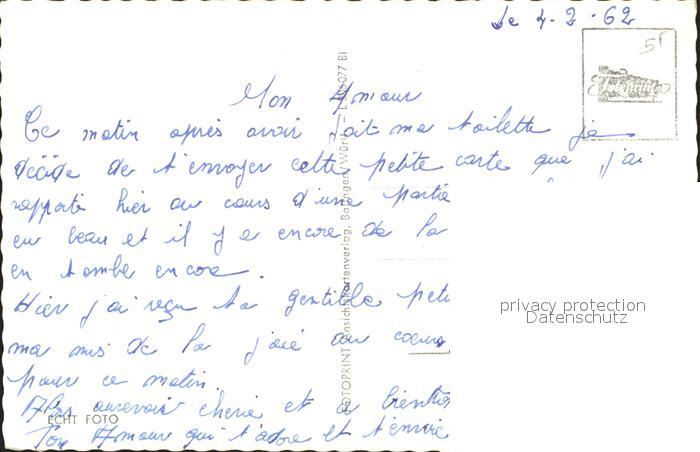 le 4-2-62
5F
Mon Amour
Ce matin après avoir fait ma toilette je
décide de t'envoyer cette petite carte que j'ai
rapporté hier au cours d'une partie
en beau et il y a encore de la
en tombe encore.
Hier j'ai reçu ta gentille peti
ma mis de la joie au coeur
pour ce matin.
aurevoir cherie et a bientot
Ton Amour qui t'adore et t'envoie
ECHT FOTO
FOTOPRINT Ansichtskartenverlag, Balingen/Württ.
privacy protection
Datenschutz